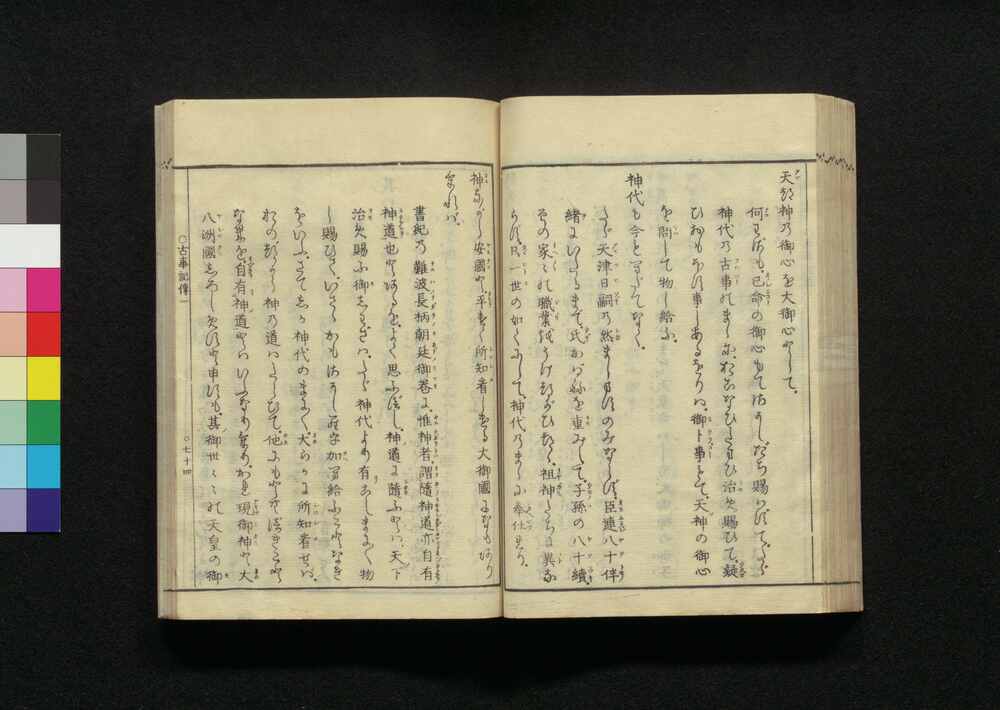 天つ神の御心を大御心として、
何わざも、己命の御心もてさかしだち賜はずて、たゞ
神代の古事のまゝに、おこなひたまひ治め賜ひて、疑
ひおもほす事しあるをりは、御卜事もて、天神の御心
を問して物し給ふ、
神代も今もへだてなく、
たゞ天津日嗣の然ましますのみならず、臣連八十伴
緒にいたるまで、氏かばねを重みして、子孫の八十續、
その家々の職業をうけつがひつゝ、祖神たちに異な
らず、只一世の如くにして、神代のまゝに奉仕れり、
神ながら安國と、平けく所知看しける大御國になもありければ、
書紀の難波長柄朝廷御巻に、惟神者、謂隨神道亦自有
神道也とあるを、よく思ふべし、神道に隨ふとは、天下
治め賜ふ御しわざは、たゞ神代より有こしまに〳〵物
し賜ひて、いさゝかもさかしらを加へ給ふことなき
をいふ、さてしか神代のまに〳〵、大らかに所知看せば、
おのづから神の道はたらひて、他にもとむべきこと
なきを、自有神道とはいふなりけり、かれ現御神と大
八洲國しろしめすと申すも、其御世々々の天皇の御
○古事記傳一
○七十四